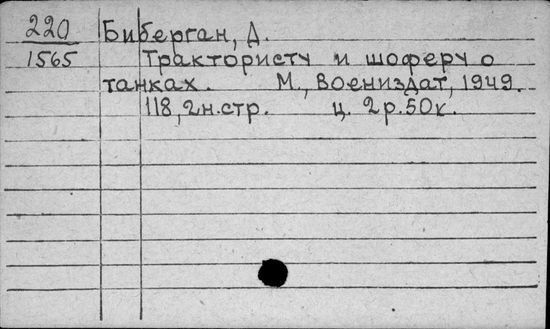 220 Биберган, Д.
1565 Трактористу и шоферу о
танках. М., Воениздат, 1949.
118, 2н.стр. ц. 2р.50к.